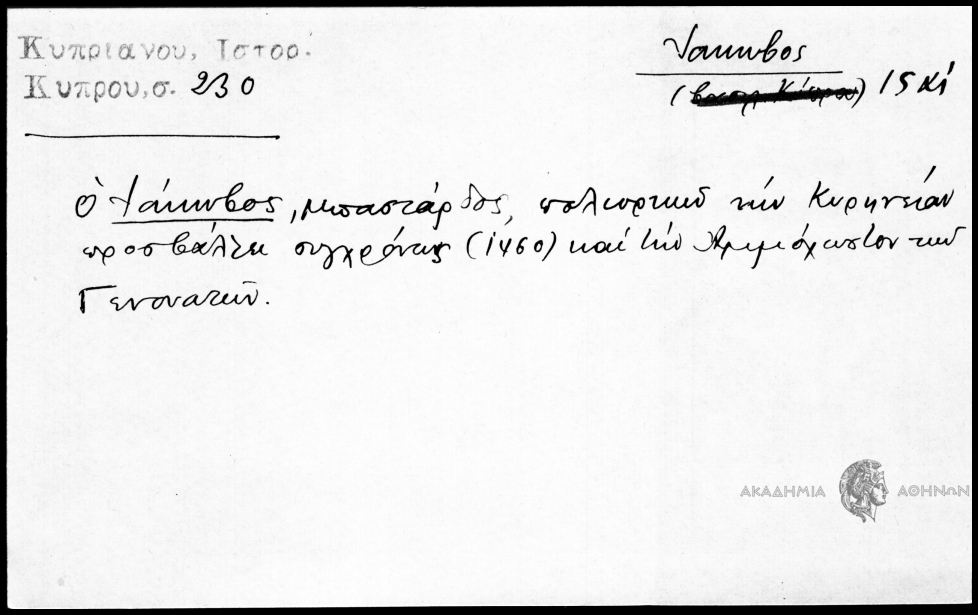 Κυπριανου, Ιστορ.
Κυπρου,σ. 230
Ἰάκωβος
(βασιλ. Κύπρου) 15 αἰ
Ὁ Ἰάκωβος, μπαστάρδος, πολιορκῶν τὴν Κυρηνείαν
προσβάλλει συγχρόνως (1460) καὶ τὴν Ἀμμόχωστον τῶν
Γενουατῶν.
ΑΚΑΔΗΜΙΑ ΑΘΗΝΩΝ